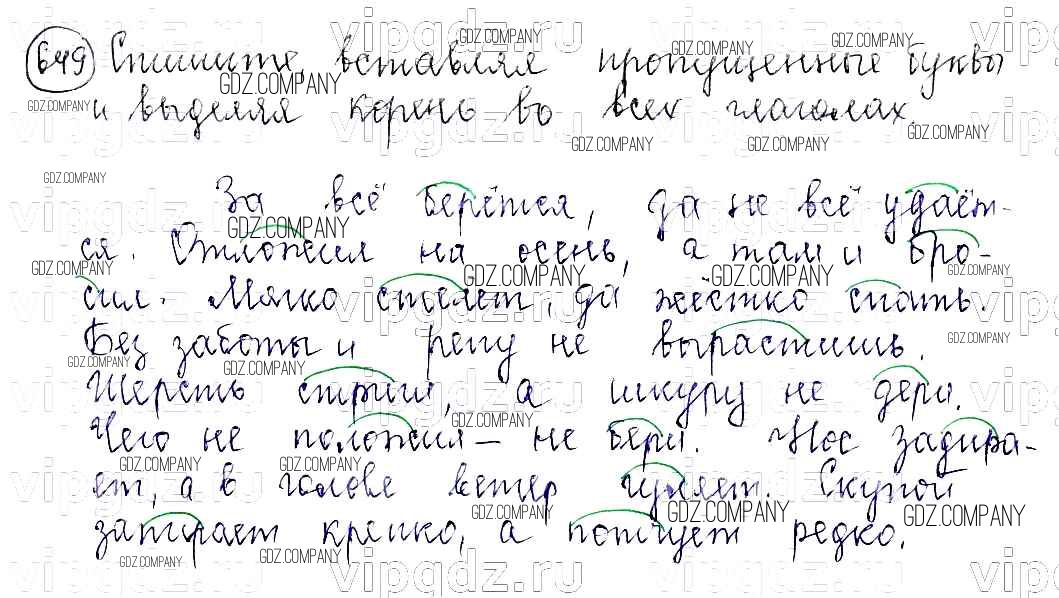 649 Спишите, вставляя пропущенные буквы
и выделяя корень во всех глаголах.
За всё берётся, да не всё удаёт-
ся. Отложил на осень, а там и бро-
сил. Мягко стелет, да жёстко спать.
Без заботы и репу не вырастишь.
Шерсть стриги, а шкуру не дери.
Чего не положил — не бери. Нос задира-
ет, а в голове ветер гуляет. Скупой
запирает крепко, а потчует редко.